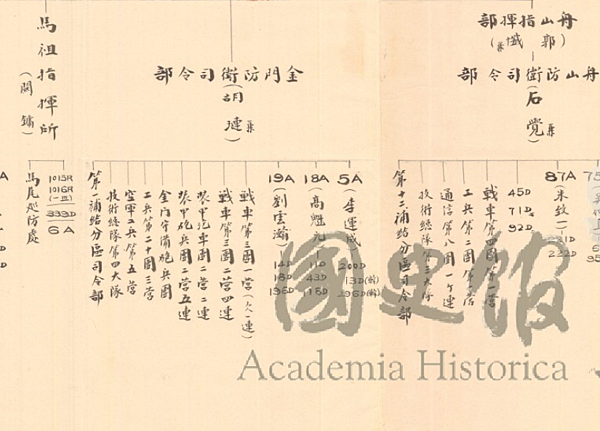 舟山指揮部
(郭懺兼)
舟山防衛司令部
(石覺兼)
87A
(朱致一)
221D
222D
45D
71D
92D
戰車第四團第一營
工兵第二團第一營
通信第八團一个連
技術總隊第三大隊
第十二補給分區司令部
金門防衛司令部
(胡璉兼)
5A
(李運成)
200D
13D
296D
18A
(高魁元)
11D
43D
118D
19A
(劉雲瀚)
14D
18D
196D
戰車第三團一營(欠一連)
戰車第三團二營四連
裝甲汽車團二營二連
裝甲砲兵團二營五連
金門守備砲兵團
工兵第二十團三營
空軍工兵第五營
技術總隊第四大隊
第一補給分區司令部
馬祖指揮所
(關鏞)
1013R
1016R
(一亚)
333D
6A
馬尾巡防處
國史館
Academia Historica